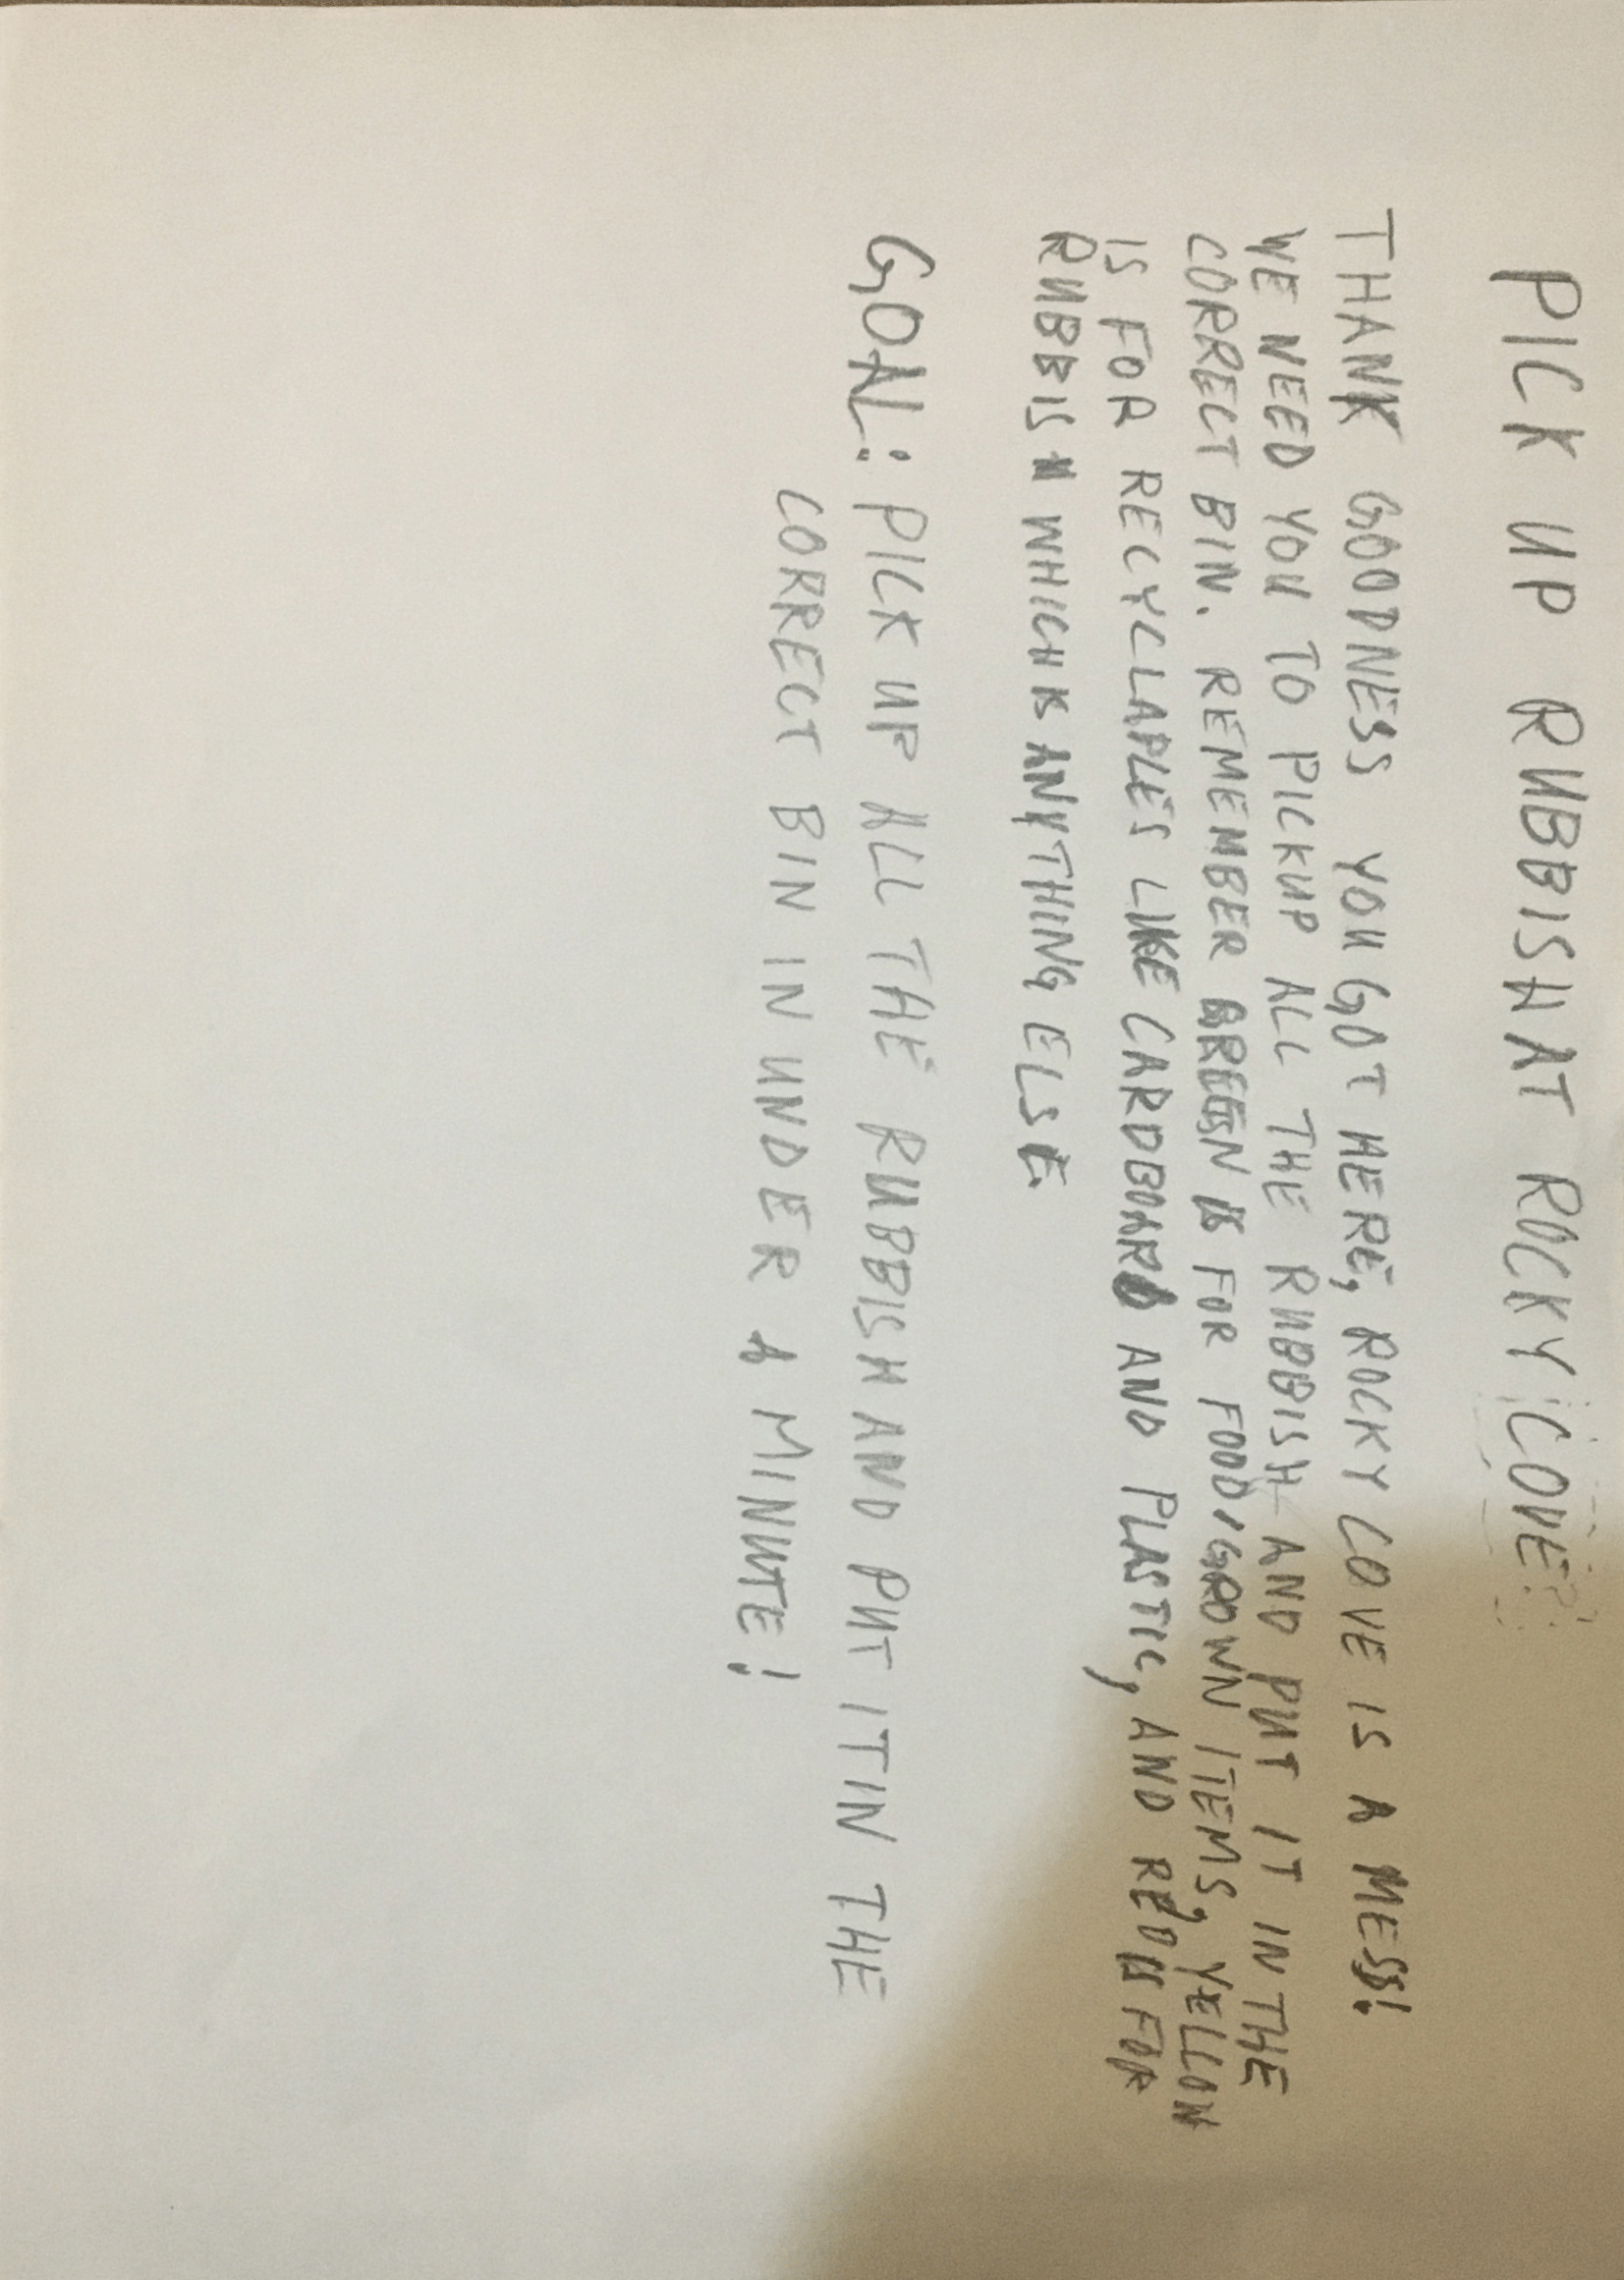 PICK UP RUBBISH AT ROCKY COVE
THANK GOODNESS YOU GOT HERE, ROCKY COVE IS A MESS!
WE NEED YOU TO PICKUP ALL THE RUBBISH AND PUT IT IN THE
CORRECT BIN. REMEMBER GREEN IS FOR FOOD/GROWN ITEMS, YELLOW
IS FOR RECYCLAPLES LIKE CARDBOARD AND PLASTIC, AND RED IS FOR
RUBBISH WHICH IS ANYTHING ELSE.
GOAL: PICK UP ALL THE RUBBISH AND PUT IT IN THE
CORRECT BIN IN UNDER A MINUTE!